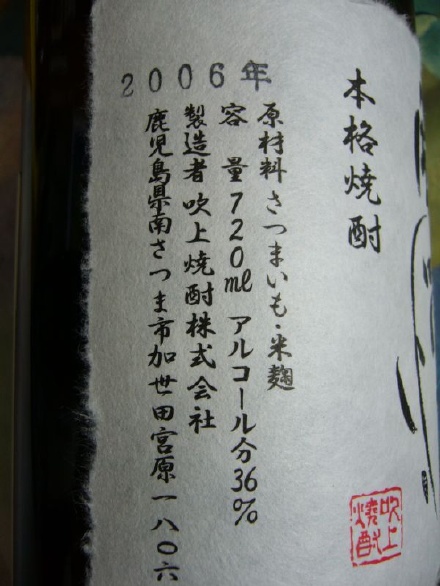 2006年
本格焼酎
原材料 さつまいも・米麹
容量 720ml アルコール分36%
製造者 吹上焼酎株式会社
鹿児島県南さつま市加世田宮原一八〇六
吹上
焼酎